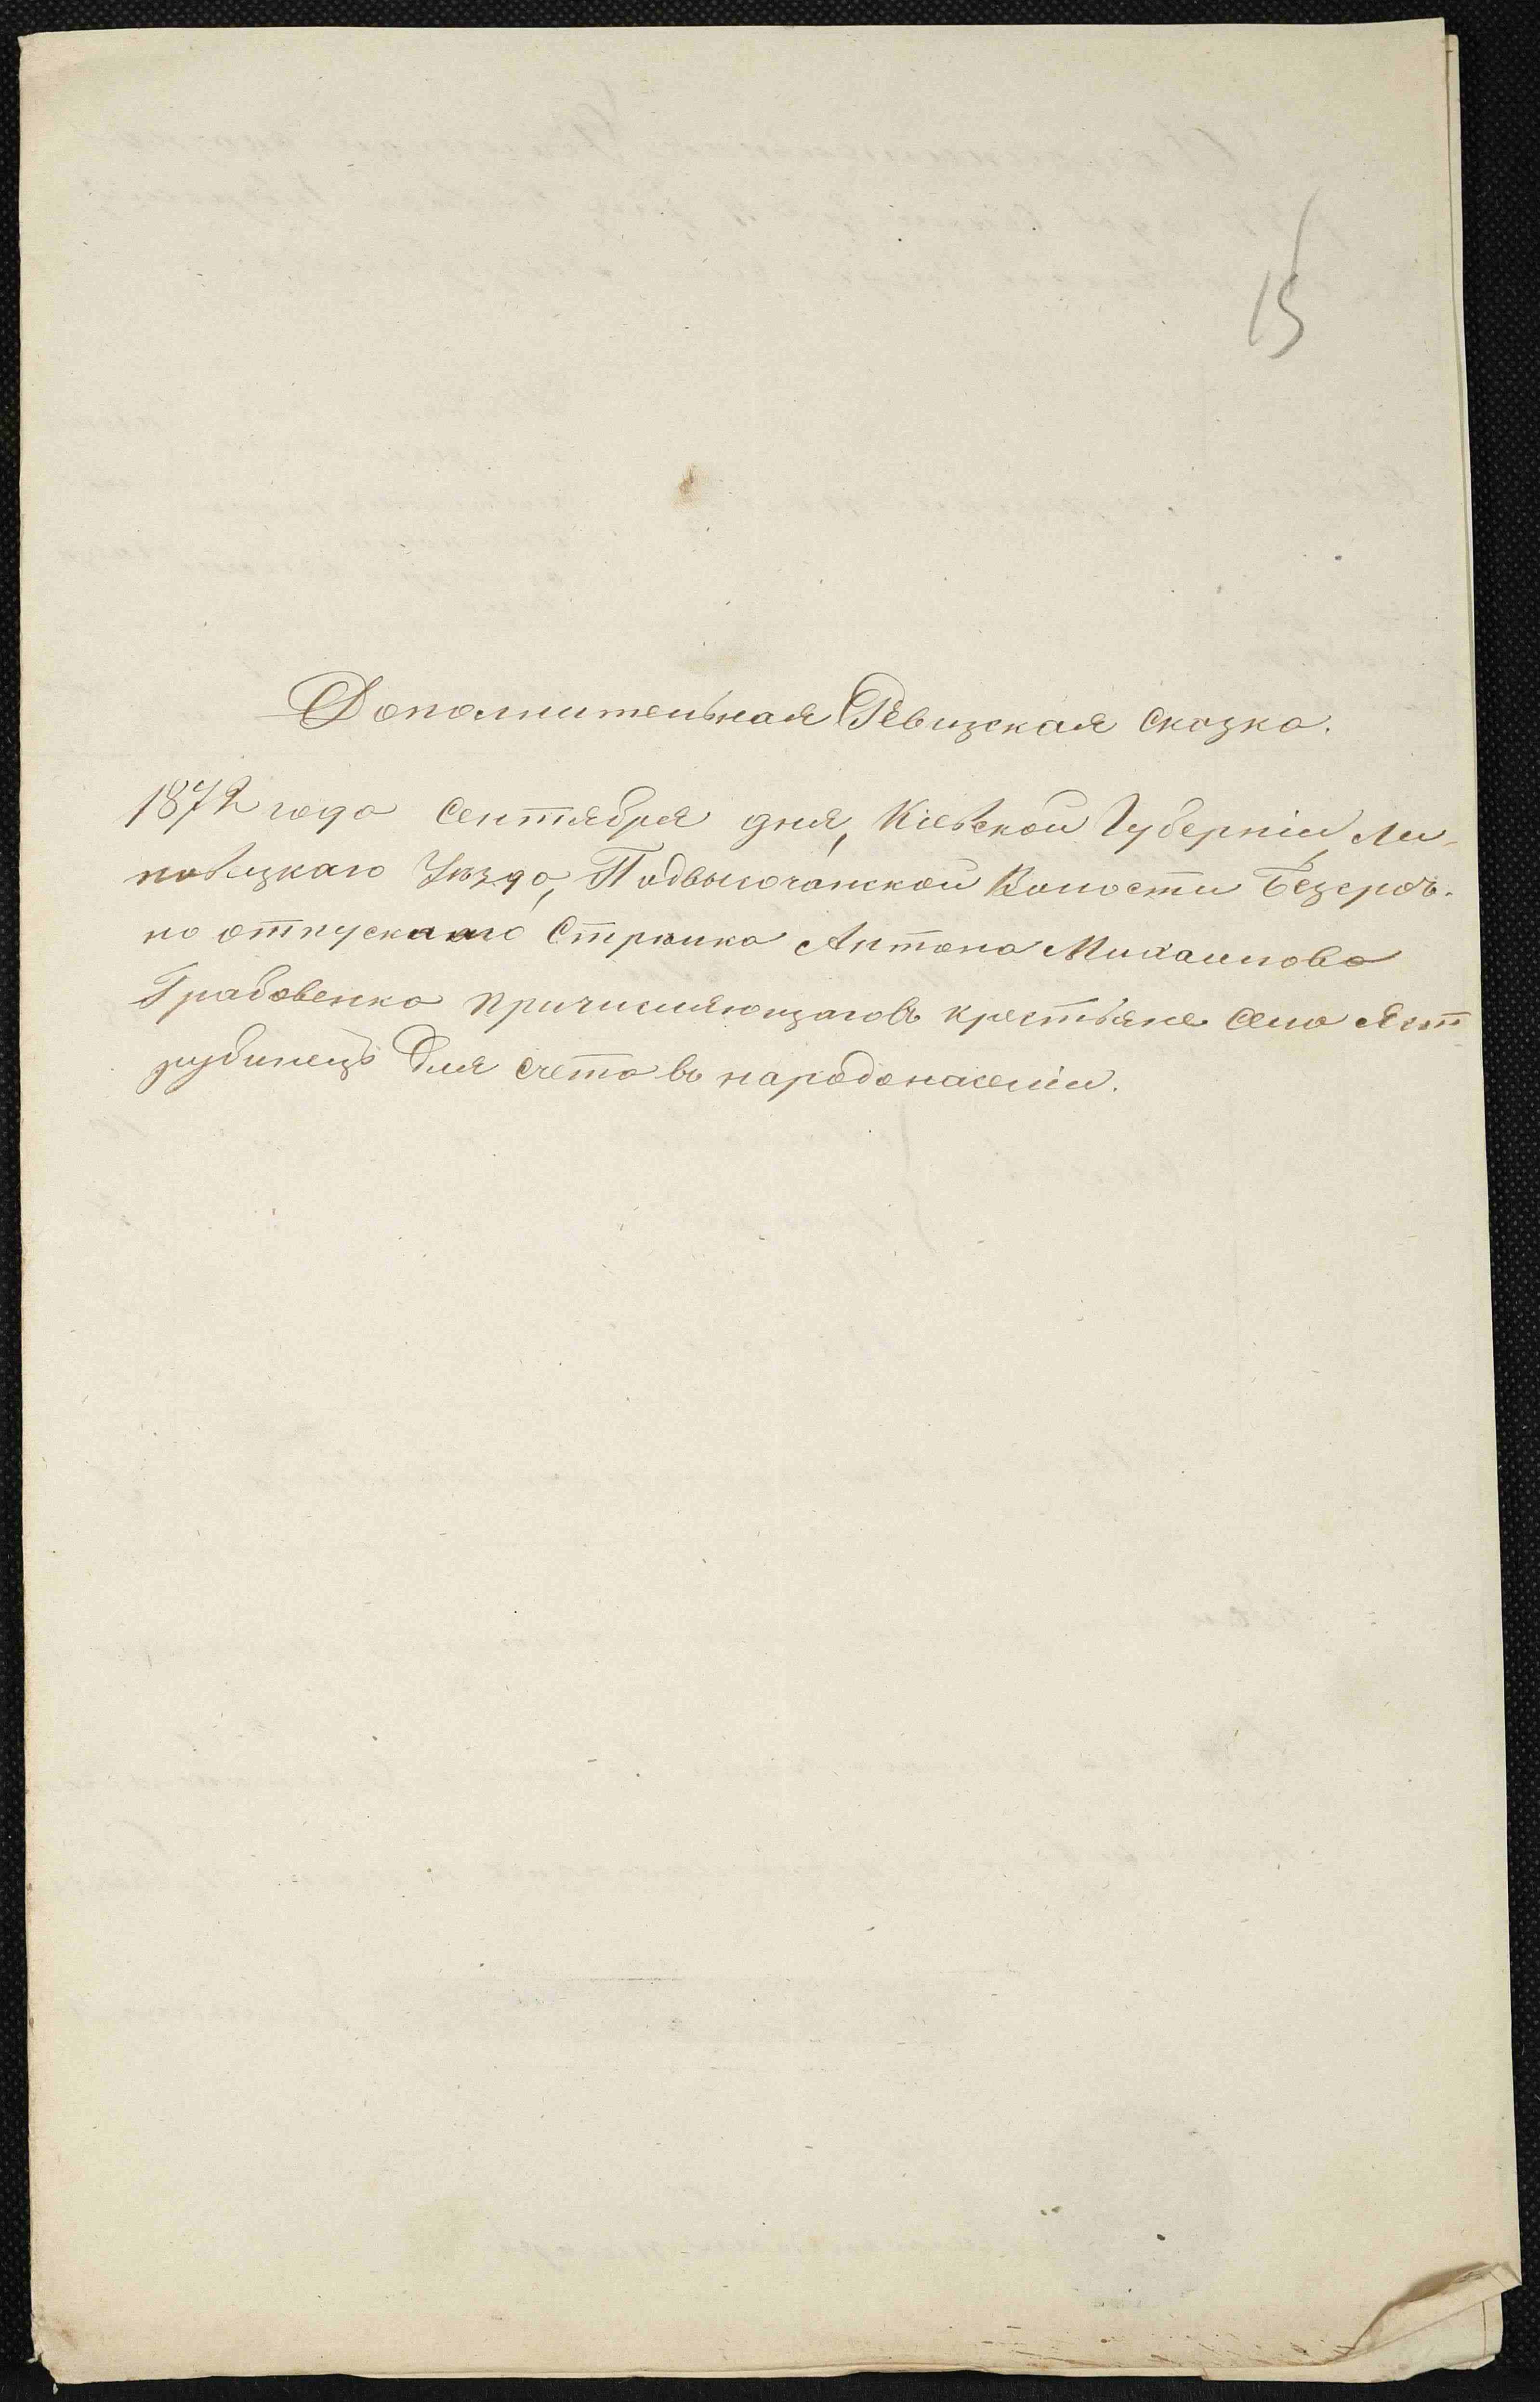 15
Дополнительная Ревизская сказка.
1872 года Сентября дня, Кіевской Губерніи, Ли-
повецкаго Уѣзда, Подвысочанской Волости Безсроч-
но отпускнаго Стрѣлка Антона Михайлова
Грабовенка причисляющагось въ крестьяне села Яст
рубинецъ для счета въ народонаселеніи.